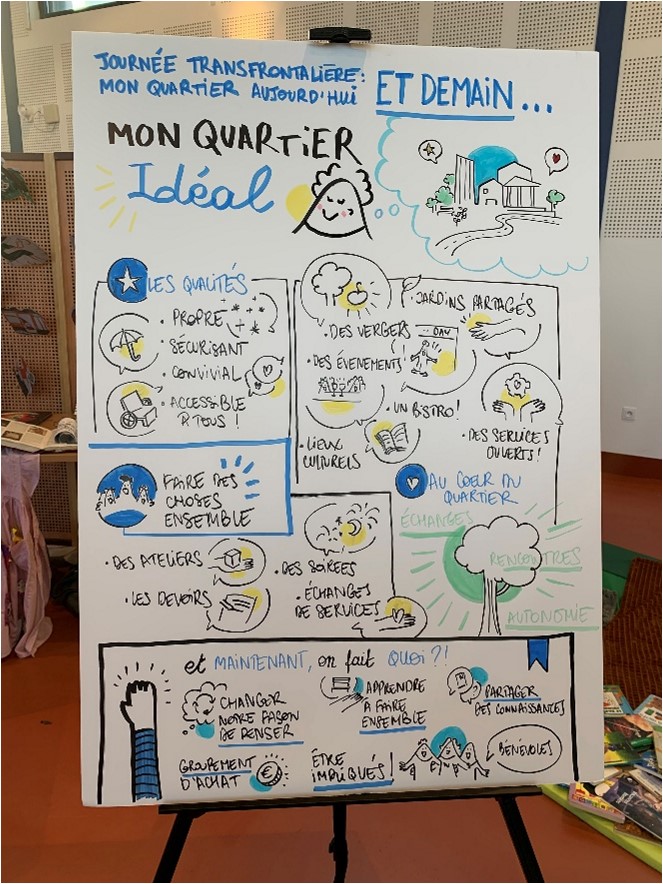 JOURNÉE TRANSFRONTALIÈRE:
MON QUARTIER AUJOURD'HUI ET DEMAIN...
MON QUARTIER
Idéal
LES QUALITÉS
• PROPRE
• SÉCURISANT
• CONVIVIAL
• ACCESSIBLE
À TOUS !
• JARDINS PARTAGÉS
• DES VERGERS
• DES ÉVENEMENTS
• UN BISTRO!
• LIEUX
CULTURELS
• DES SERVICES
OUVERTS!
FAIRE DES
CHOSES
ENSEMBLE
• DES ATELIERS
• LES DEVOIRS
• DES SOIRÉES
• ÉCHANGES
DE SERVICES
AU CŒUR DU
QUARTIER
ÉCHANGES
RENCONTRES
AUTONOMIE
et MAINTENANT, on fait QUOI ?!
CHANGER
NOTRE FAÇON
DE PENSER
APPRENDRE
A FAIRE
ENSEMBLE
PARTAGER
DES CONNAISSANCES
GROUPEMENT
D'ACHAT
€
ÊTRE
IMPLIQUÉS!
BÉNÉVOLES